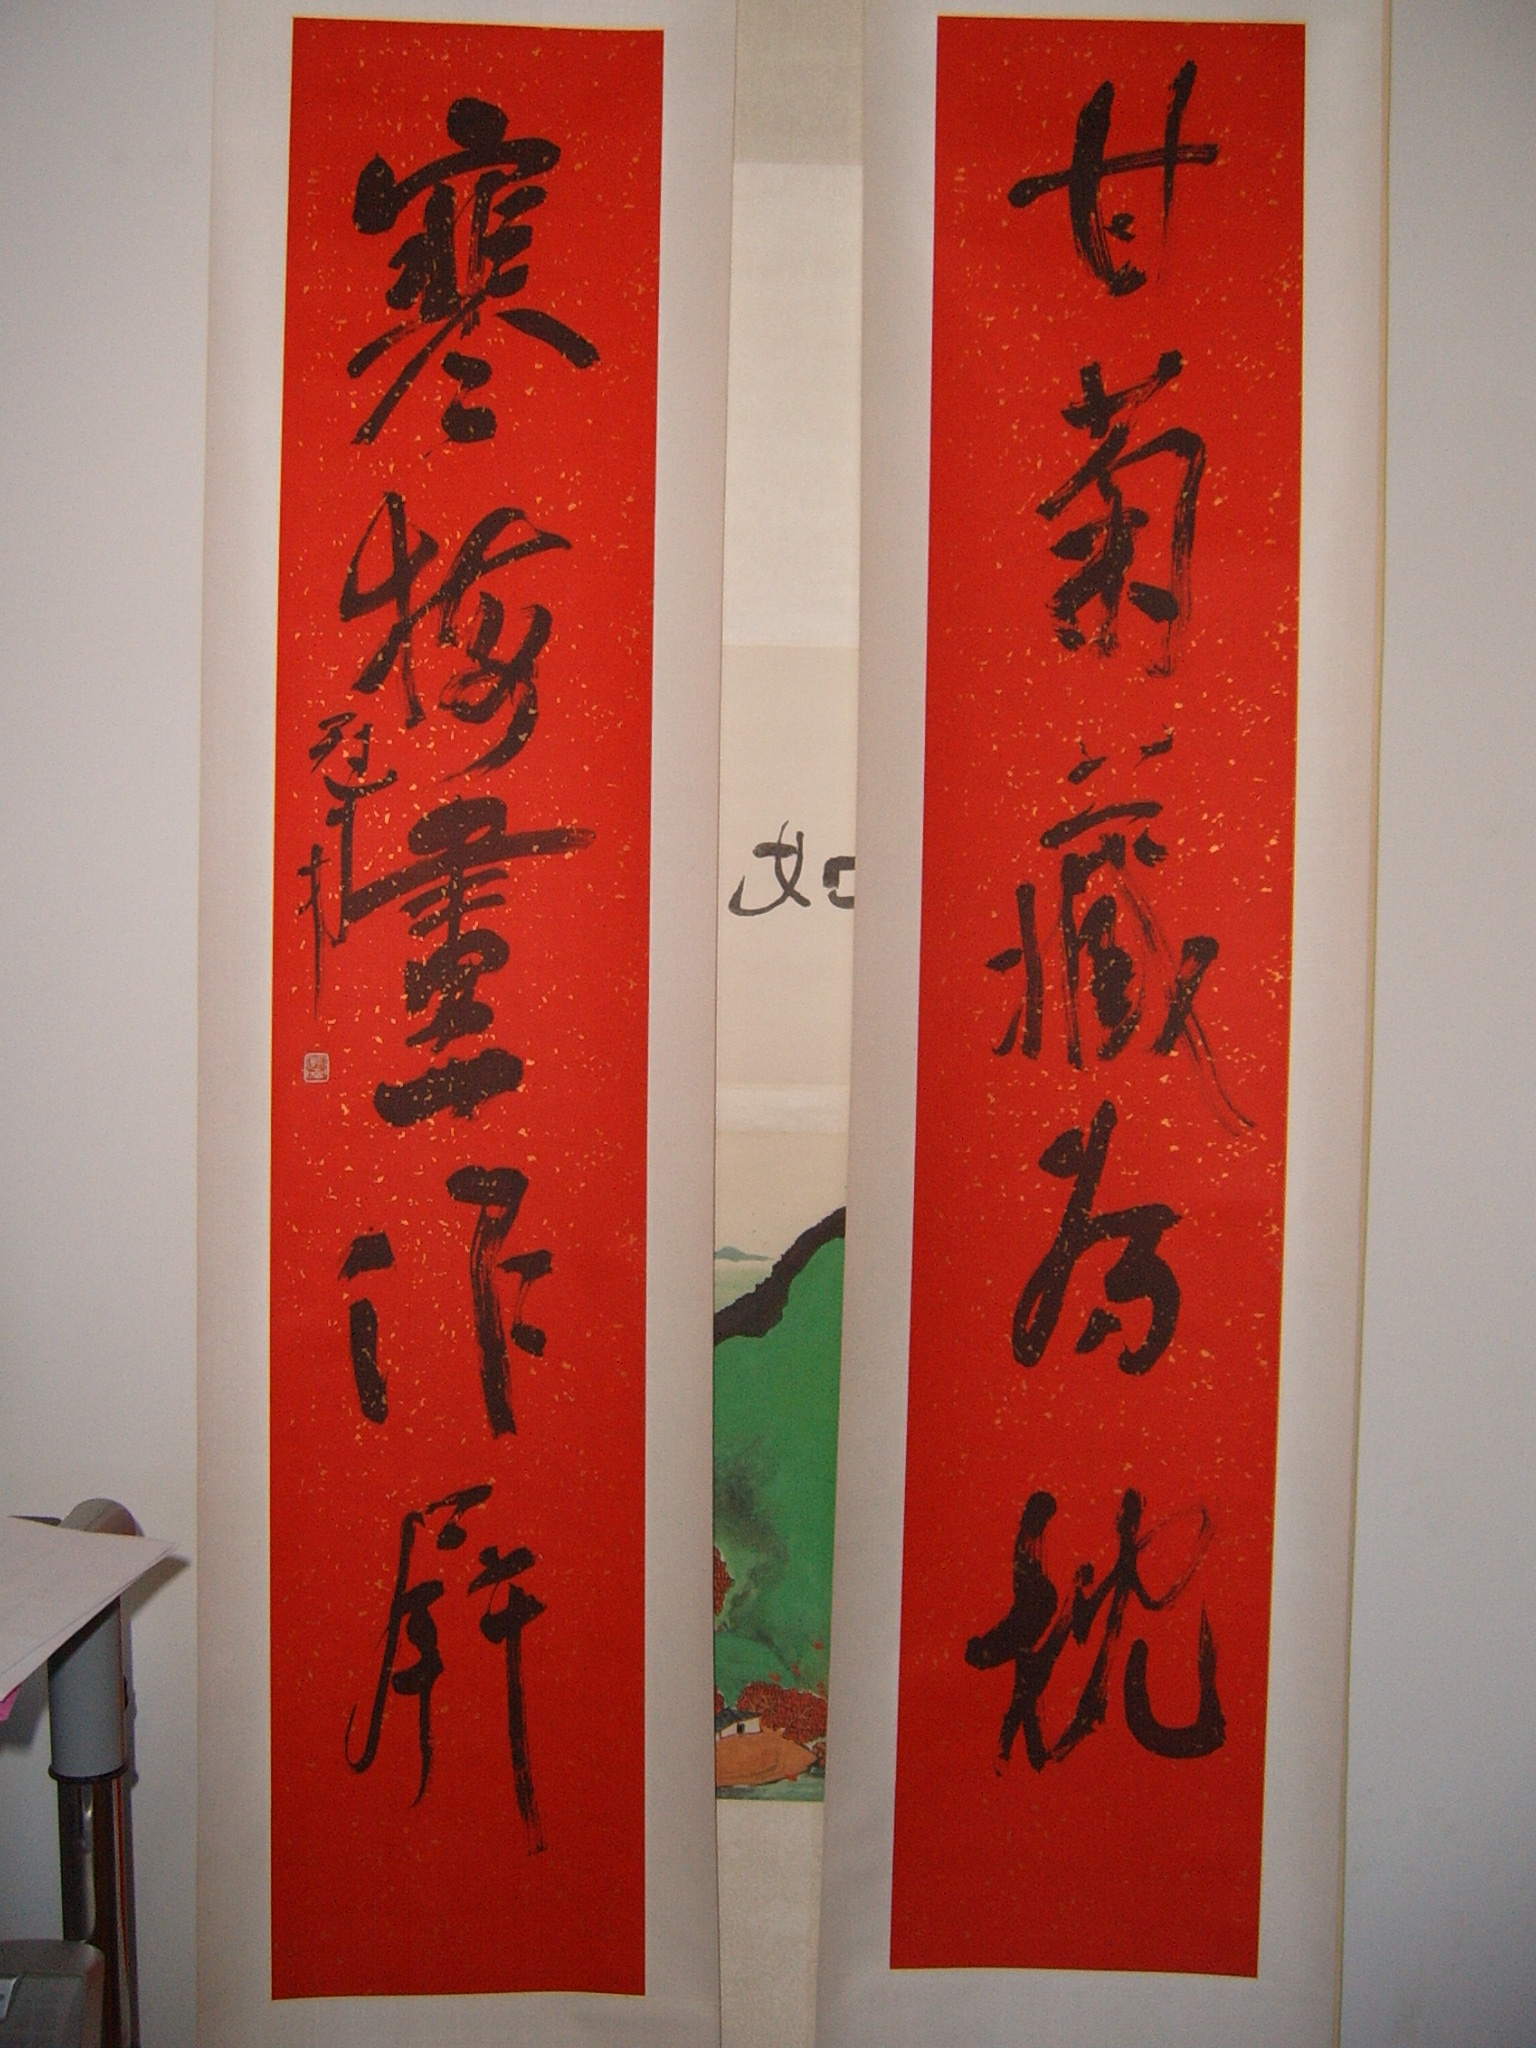 甘菊藏为枕
寒梅画作屏
如